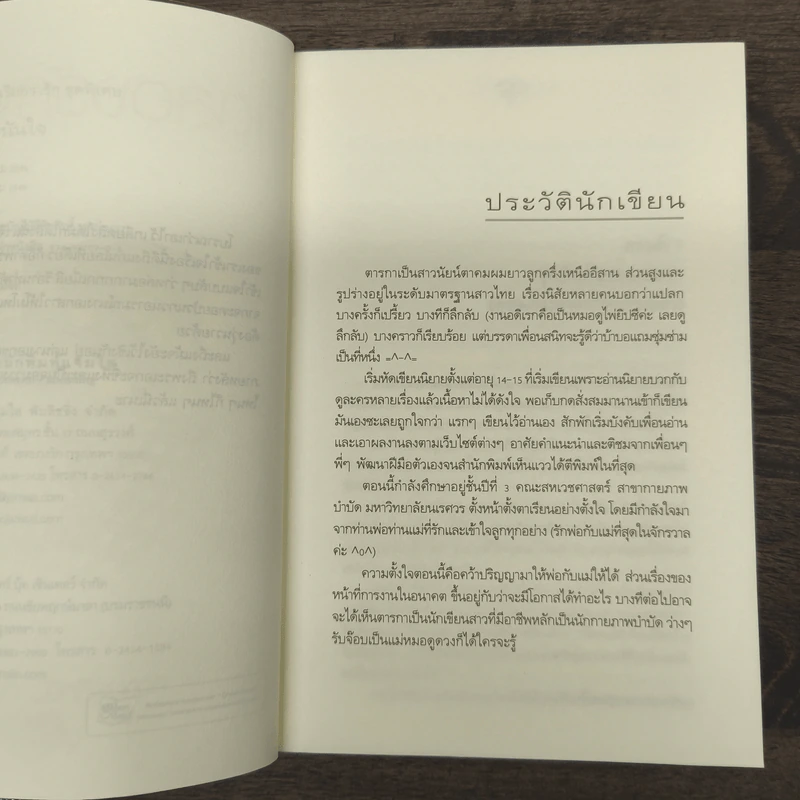 ประวัตินักเขียน
ตารกาเป็นสาวนัยน์ตาคมผมยาวลูกครึ่งเหนืออีสาน ส่วนสูงและ
รูปร่างอยู่ในระดับมาตรฐานสาวไทย เรื่องนิสัยหลายคนบอกว่าแปลก
บางครั้งก็เปรี้ยว บางทีก็ลึกลับ (งานอดิเรกคือเป็นหมอดูไพ่ยิปซีค่ะ เลยดู
ลึกลับ) บางคราวก็เรียบร้อย แต่บรรดาเพื่อนสนิทจะรู้ดีว่าบ้าบอแถมซุ่มซ่าม
เป็นที่หนึ่ง =^-^=
เริ่มหัดเขียนนิยายตั้งแต่อายุ 14-15 ที่เริ่มเขียนเพราะอ่านนิยายบวกกับ
ดูละครหลายเรื่องแล้วเนื้อหาไม่ได้ดังใจ พอเก็บกดสั่งสมมานานเข้าก็เขียน
มันเองซะเลยถูกใจกว่า แรกๆ เขียนไว้อ่านเอง สักพักเริ่มบังคับเพื่อนอ่าน
และเอาผลงานลงตามเว็บไซต์ต่างๆ อาศัยคำแนะนำและติชมจากเพื่อนๆ
พี่ๆ พัฒนาฝีมือตัวเองจนสำนักพิมพ์เห็นแววได้ตีพิมพ์ในที่สุด
ตอนนี้กำลังศึกษาอยู่ชั้นปีที่ 3 คณะสหเวชศาสตร์ สาขากายภาพ
บำบัด มหาวิทยาลัยนเรศวร ตั้งหน้าตั้งตาเรียนอย่างตั้งใจ โดยมีกำลังใจมา
จากท่านพ่อท่านแม่ที่รักและเข้าใจลูกทุกอย่าง (รักพ่อกับแม่ที่สุดในจักรวาล
ค่ะ ^o^)
ความตั้งใจตอนนี้คือคว้าปริญญามาให้พ่อกับแม่ให้ได้ ส่วนเรื่องของ
หน้าที่การงานในอนาคต ขึ้นอยู่กับว่าจะมีโอกาสได้ทำอะไร บางทีต่อไปอาจ
จะได้เห็นตารกาเป็นนักเขียนสาวที่มีอาชีพหลักเป็นนักกายภาพบำบัด ว่างๆ
รับจ๊อบเป็นแม่หมอดูดวงก็ได้ใครจะรู้